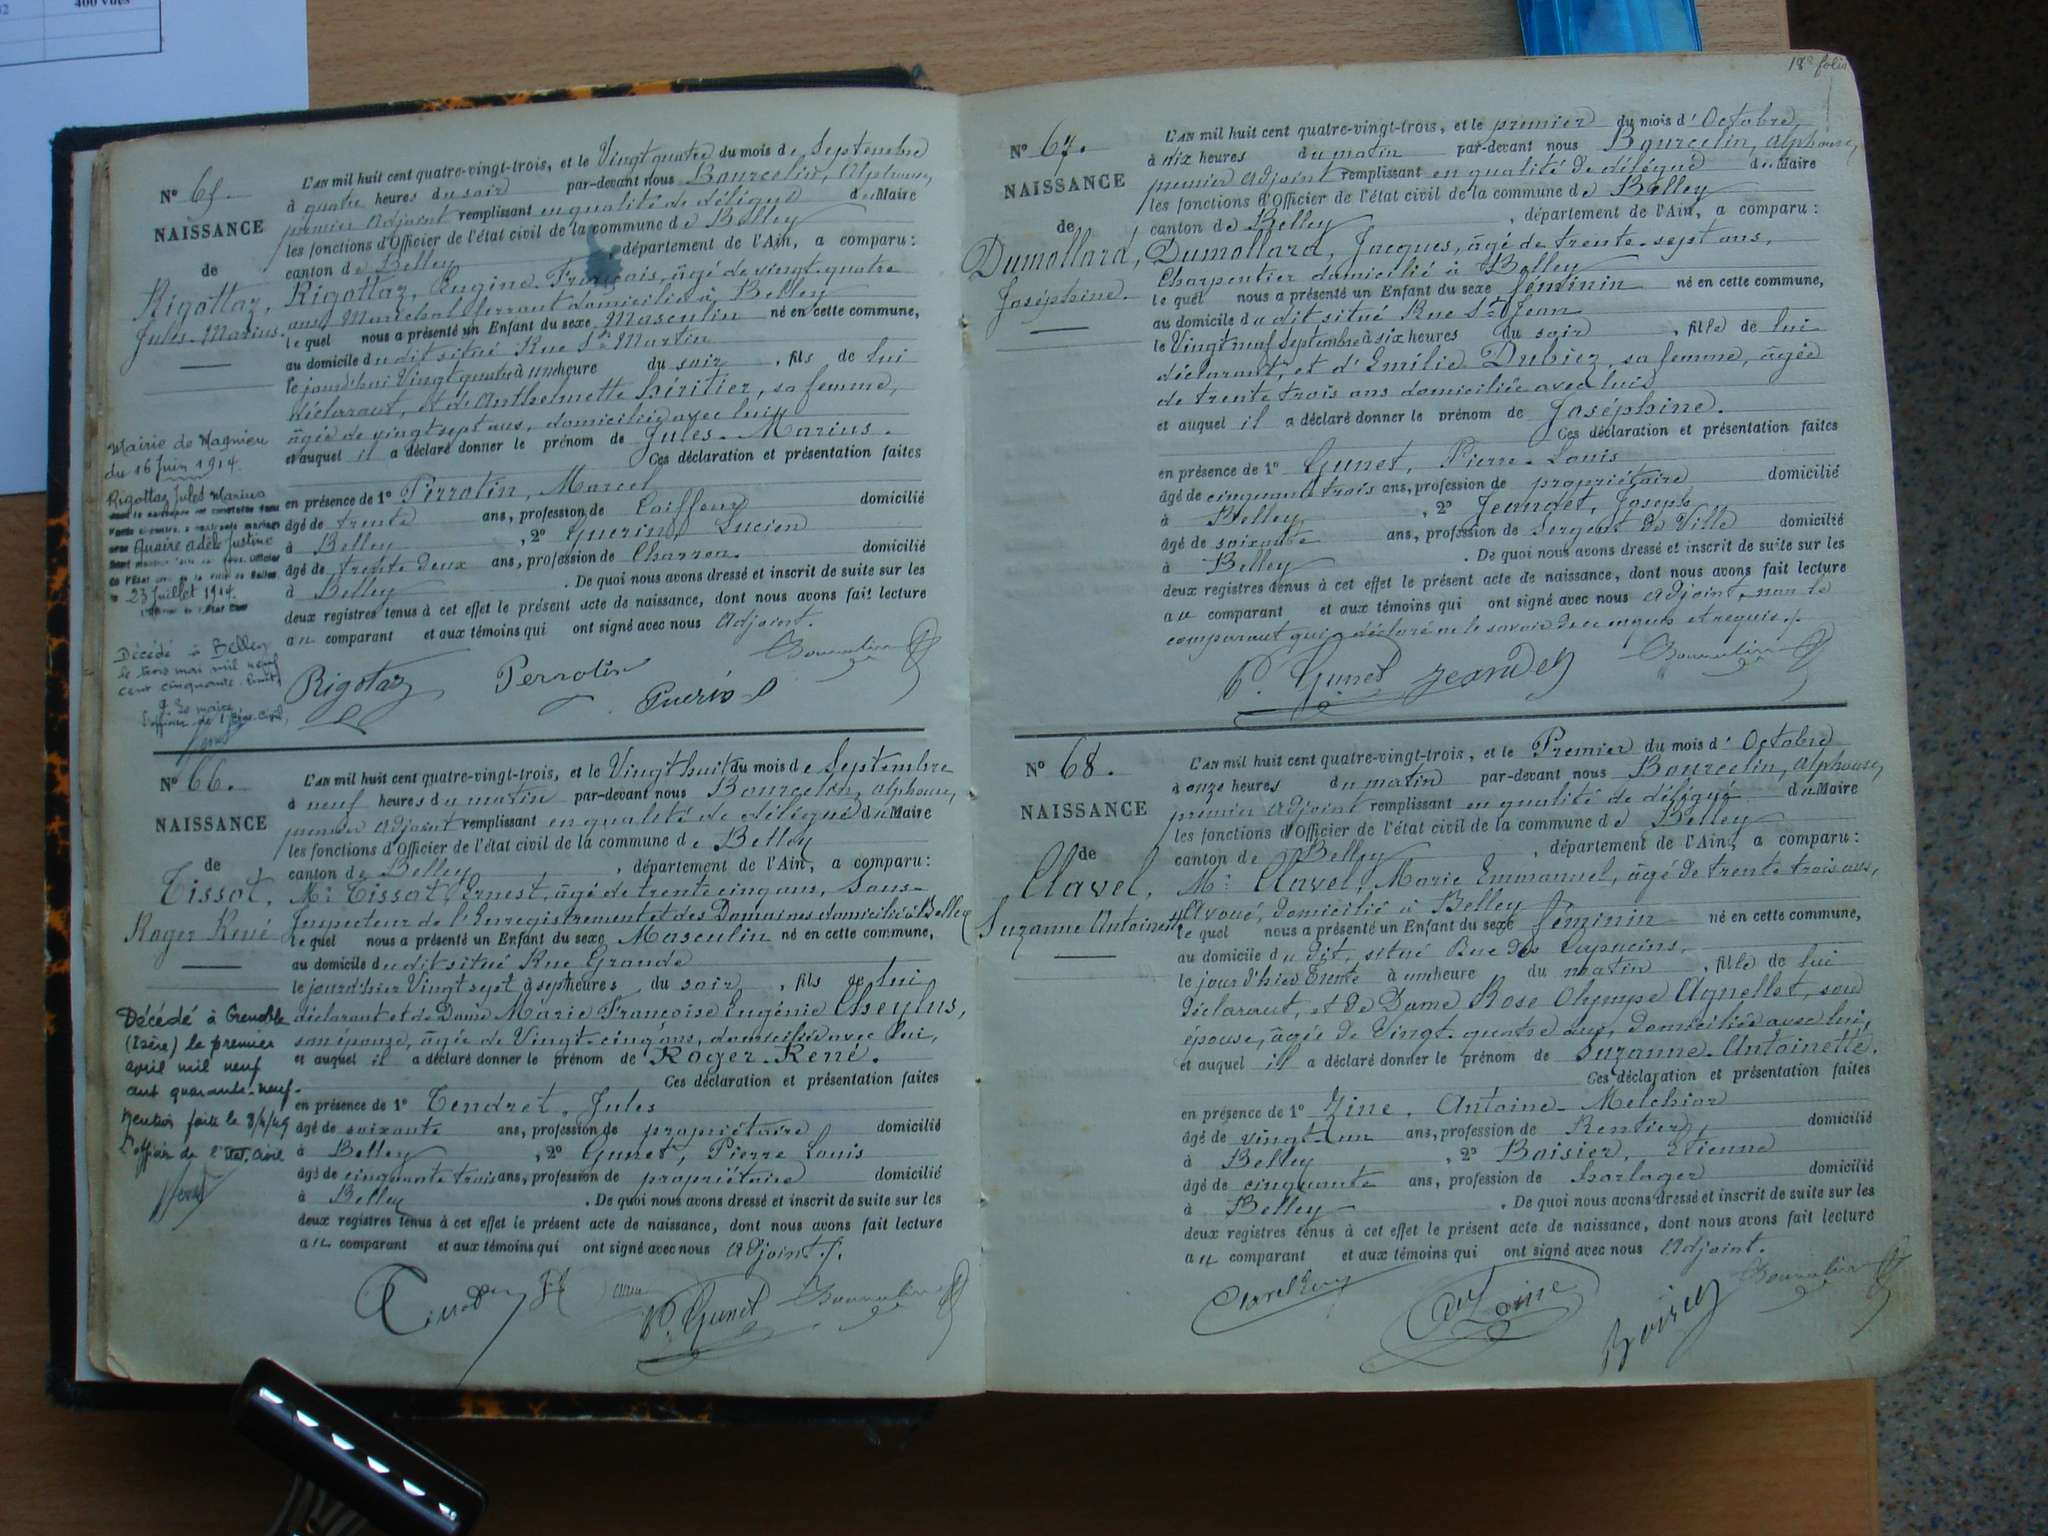 400 vues
18e folio
N° 65.
NAISSANCE
de
Rigottaz,
Jules-Marius.
L'AN mil huit cent quatre-vingt-trois, et le Vingt quatre du mois de Septembre
à quatre heures du soir par-devant nous Bourcelin, Alphonse,
premier Adjoint remplissant en qualité de délégué du Maire
les fonctions d'Officier de l'état civil de la commune de Belley
canton de Belley département de l'Ain, a comparu:
Rigottaz, Eugine-François, âgé de vingt-quatre
ans, Maréchal ferrant domicilié à Belley
le quel nous a présenté un Enfant du sexe Masculin né en cette commune,
au domicile du dit situé Rue St Martin
le jourd'hui Vingt quatre à une heure du soir, fils de lui
déclarant, et de Anthelmette héritier, sa femme,
âgée de vingt sept ans, domiciliée avec lui
et auquel il a déclaré donner le prénom de Jules-Marius.
Ces déclaration et présentation faites
en présence de 1° Perrotin, Marcel
âgé de trente ans, profession de Coiffeur domicilié
à Belley, 2° Guerin, Lucien
âgé de trente deux ans, profession de Charron. domicilié
à Belley. De quoi nous avons dressé et inscrit de suite sur les
deux registres tenus à cet effet le présent acte de naissance, dont nous avons fait lecture
au comparant et aux témoins qui ont signé avec nous Adjoint.
Rigotaz Perrotin Guérin
Mairie de Magnieu
du 16 Juin 1914.
Rigottaz Jules Marius
Quaire Adèle Justine
23 Juillet 1914.
Décédé à Belley
le trois mai mil neuf
cent cinquante-huit
Le maire
l'officier de l'État-Civil,
N° 66.
NAISSANCE
de
Tissot,
Roger René
L'AN mil huit cent quatre-vingt-trois, et le Vingt huit du mois de Septembre
à neuf heures du matin par-devant nous Bourcelin, Alphonse,
premier Adjoint remplissant en qualité de délégué du Maire
les fonctions d'Officier de l'état civil de la commune de Belley
canton de Belley, département de l'Ain, a comparu:
Mr Tissot, Ernest, âgé de trente cinq ans, Sous-
Inspecteur de l'Enregistrement et des Domaines domicilié à Belley
le quel nous a présenté un Enfant du sexe Masculin né en cette commune,
au domicile du dit situé Rue Grande
le jour d'hier Vingt sept à sept heures du soir, fils de lui
déclarant et de Dame Marie Françoise Eugénie Cheylus,
son épouse, âgée de Vingt-cinq ans, domiciliée avec lui,
et auquel il a déclaré donner le prénom de Roger-René.
Ces déclaration et présentation faites
en présence de 1° Tendret, Jules
âgé de soixante ans, profession de propriétaire domicilié
à Belley, 2° Gunet, Pierre Louis
âgé de cinquante trois ans, profession de propriétaire domicilié
à Belley. De quoi nous avons dressé et inscrit de suite sur les
deux registres tenus à cet effet le présent acte de naissance, dont nous avons fait lecture
au comparant et aux témoins qui ont signé avec nous Adjoint./.
P. Gunet
Décédé à Grenoble
(Isère) le premier
avril mil neuf
cent quarante-neuf.
Mention faite le 8/4/49
L'officier de l'Etat Civil
N° 67.
NAISSANCE
de
Dumollard,
Joséphine.
L'AN mil huit cent quatre-vingt-trois, et le premier du mois d'Octobre,
à dix heures du matin par-devant nous Bourcelin, Alphonse,
premier Adjoint remplissant en qualité de délégué du Maire
les fonctions d'Officier de l'état civil de la commune de Belley
canton de Belley, département de l'Ain, a comparu:
Dumollard, Jacques, âgé de trente-sept ans,
Charpentier domicilié à Belley
le quel nous a présenté un Enfant du sexe féminin né en cette commune,
au domicile du dit situé Rue St Jean
le Vingt neuf Septembre à six heures du soir, fille de lui
déclarant, et d'Emilie Dubiez, sa femme, âgée
de trente trois ans domiciliée avec lui
et auquel il a déclaré donner le prénom de Joséphine.
Ces déclaration et présentation faites
en présence de 1° Gunet, Pierre-Louis
âgé de cinquante trois ans, profession de propriétaire, domicilié
à Belley, 2° Jeandet, Joseph
âgé de soixante ans, profession de Sergent de Ville domicilié
à Belley. De quoi nous avons dressé et inscrit de suite sur les
deux registres tenus à cet effet le présent acte de naissance, dont nous avons fait lecture
au comparant et aux témoins qui ont signé avec nous Adjoint, non le
comparant qui a déclaré ne le savoir de ce enquis et requis./.
P. Gunet Jeandet
N° 68.
NAISSANCE
de
Clavel,
Suzanne Antoinette
L'AN mil huit cent quatre-vingt-trois, et le Premier du mois d'Octobre
à onze heures du matin par-devant nous Bourcelin, Alphonse,
premier Adjoint remplissant en qualité de délégué du Maire
les fonctions d'Officier de l'état civil de la commune de Belley
canton de Belley, département de l'Ain, a comparu:
Mr Clavel, Marie Emmanuel, âgé de trente trois ans,
Avoué, domicilié à Belley
le quel nous a présenté un Enfant du sexe féminin né en cette commune,
au domicile du dit, situé Rue des Capucins,
le jour d'hier Trente à une heure du matin, fille de lui
déclarant, et de Dame Rose Olympe Agnellet, son
épouse, âgée de Vingt-quatre ans, domiciliée avec lui,
et auquel il a déclaré donner le prénom de Suzanne-Antoinette.
Ces déclaration et présentation faites
en présence de 1° Zine, Antoine-Melchior
âgé de vingt-un ans, profession de Rentier, domicilié
à Belley, 2° Boisier, Etienne
âgé de cinquante ans, profession de horloger domicilié
à Belley. De quoi nous avons dressé et inscrit de suite sur les
deux registres tenus à cet effet le présent acte de naissance, dont nous avons fait lecture
au comparant et aux témoins qui ont signé avec nous Adjoint.